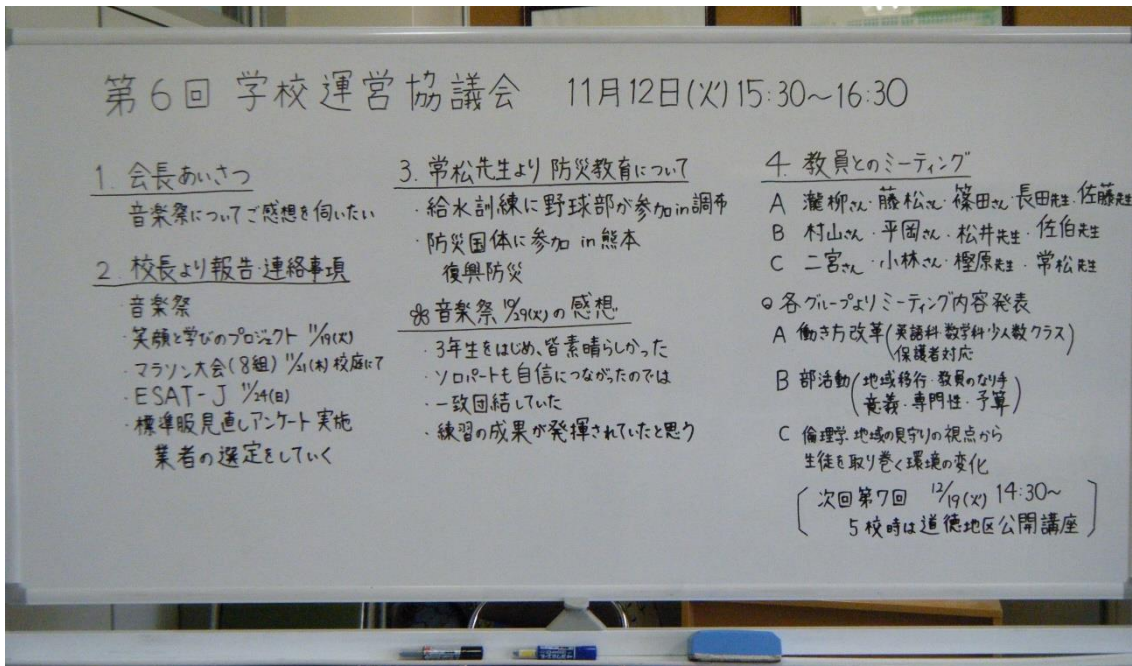 第6回 学校運営協議会 11月12日(火)15:30～16:30
1. 会長あいさつ
音楽祭についてご感想を伺いたい
2. 校長より報告・連絡事項
・音楽祭
・笑顔と学びのプロジェクト 11/19(火)
・マラソン大会(8組) 11/21(木)校庭にて
・ESAT-J 11/24(日)
・標準服見直しアンケート実施
業者の選定をしていく
3. 常松先生より防災教育について
・給水訓練に野球部が参加in調布
・防災国体に参加 in 熊本
復興防災
※音楽祭10/29(火)の感想
・3年生をはじめ、皆素晴らしかった
・ソロパートも自信につながったのでは
・一致団結していた
・練習の成果が発揮されていたと思う
4. 教員とのミーティング
A 瀧柳さん・藤松さん・篠田さん・長田先生・佐藤先生
B 村山さん・平岡さん・松井先生・佐伯先生
C 二宮さん・小林さん・樫原先生・常松先生
○各グループよりミーティング内容発表
A 働き方改革(英語科・数学科・少人数クラス)
保護者対応
B 部活動(地域移行・教員のなり手)
意義・専門性・予算
C 倫理学、地域の見守りの視点から
生徒を取り巻く環境の変化
次回第7回 12/19(火) 14:30～
5校時は道徳地区公開講座